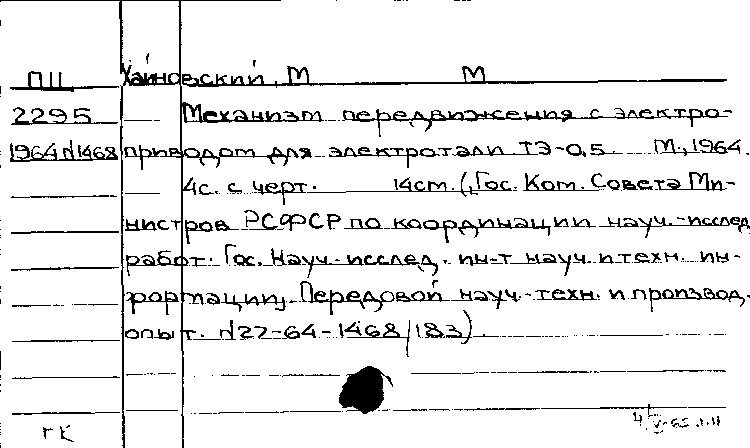 ПЦ Хайновский, М М
2295 Механизм передвижения с электро-
1964 N1468 приводом для электротали ТЭ-0,5 М., 1964.
4с. с черт. 14см. (Гос. Ком. Совета Ми-
нистров РСФСР по координации науч.-исслед.
работ. Гос. Науч.-исслед. ин-т науч. и техн. ин-
формации). Передовой науч.-техн. и производ.
опыт. N22-64-1468/183)
ГК